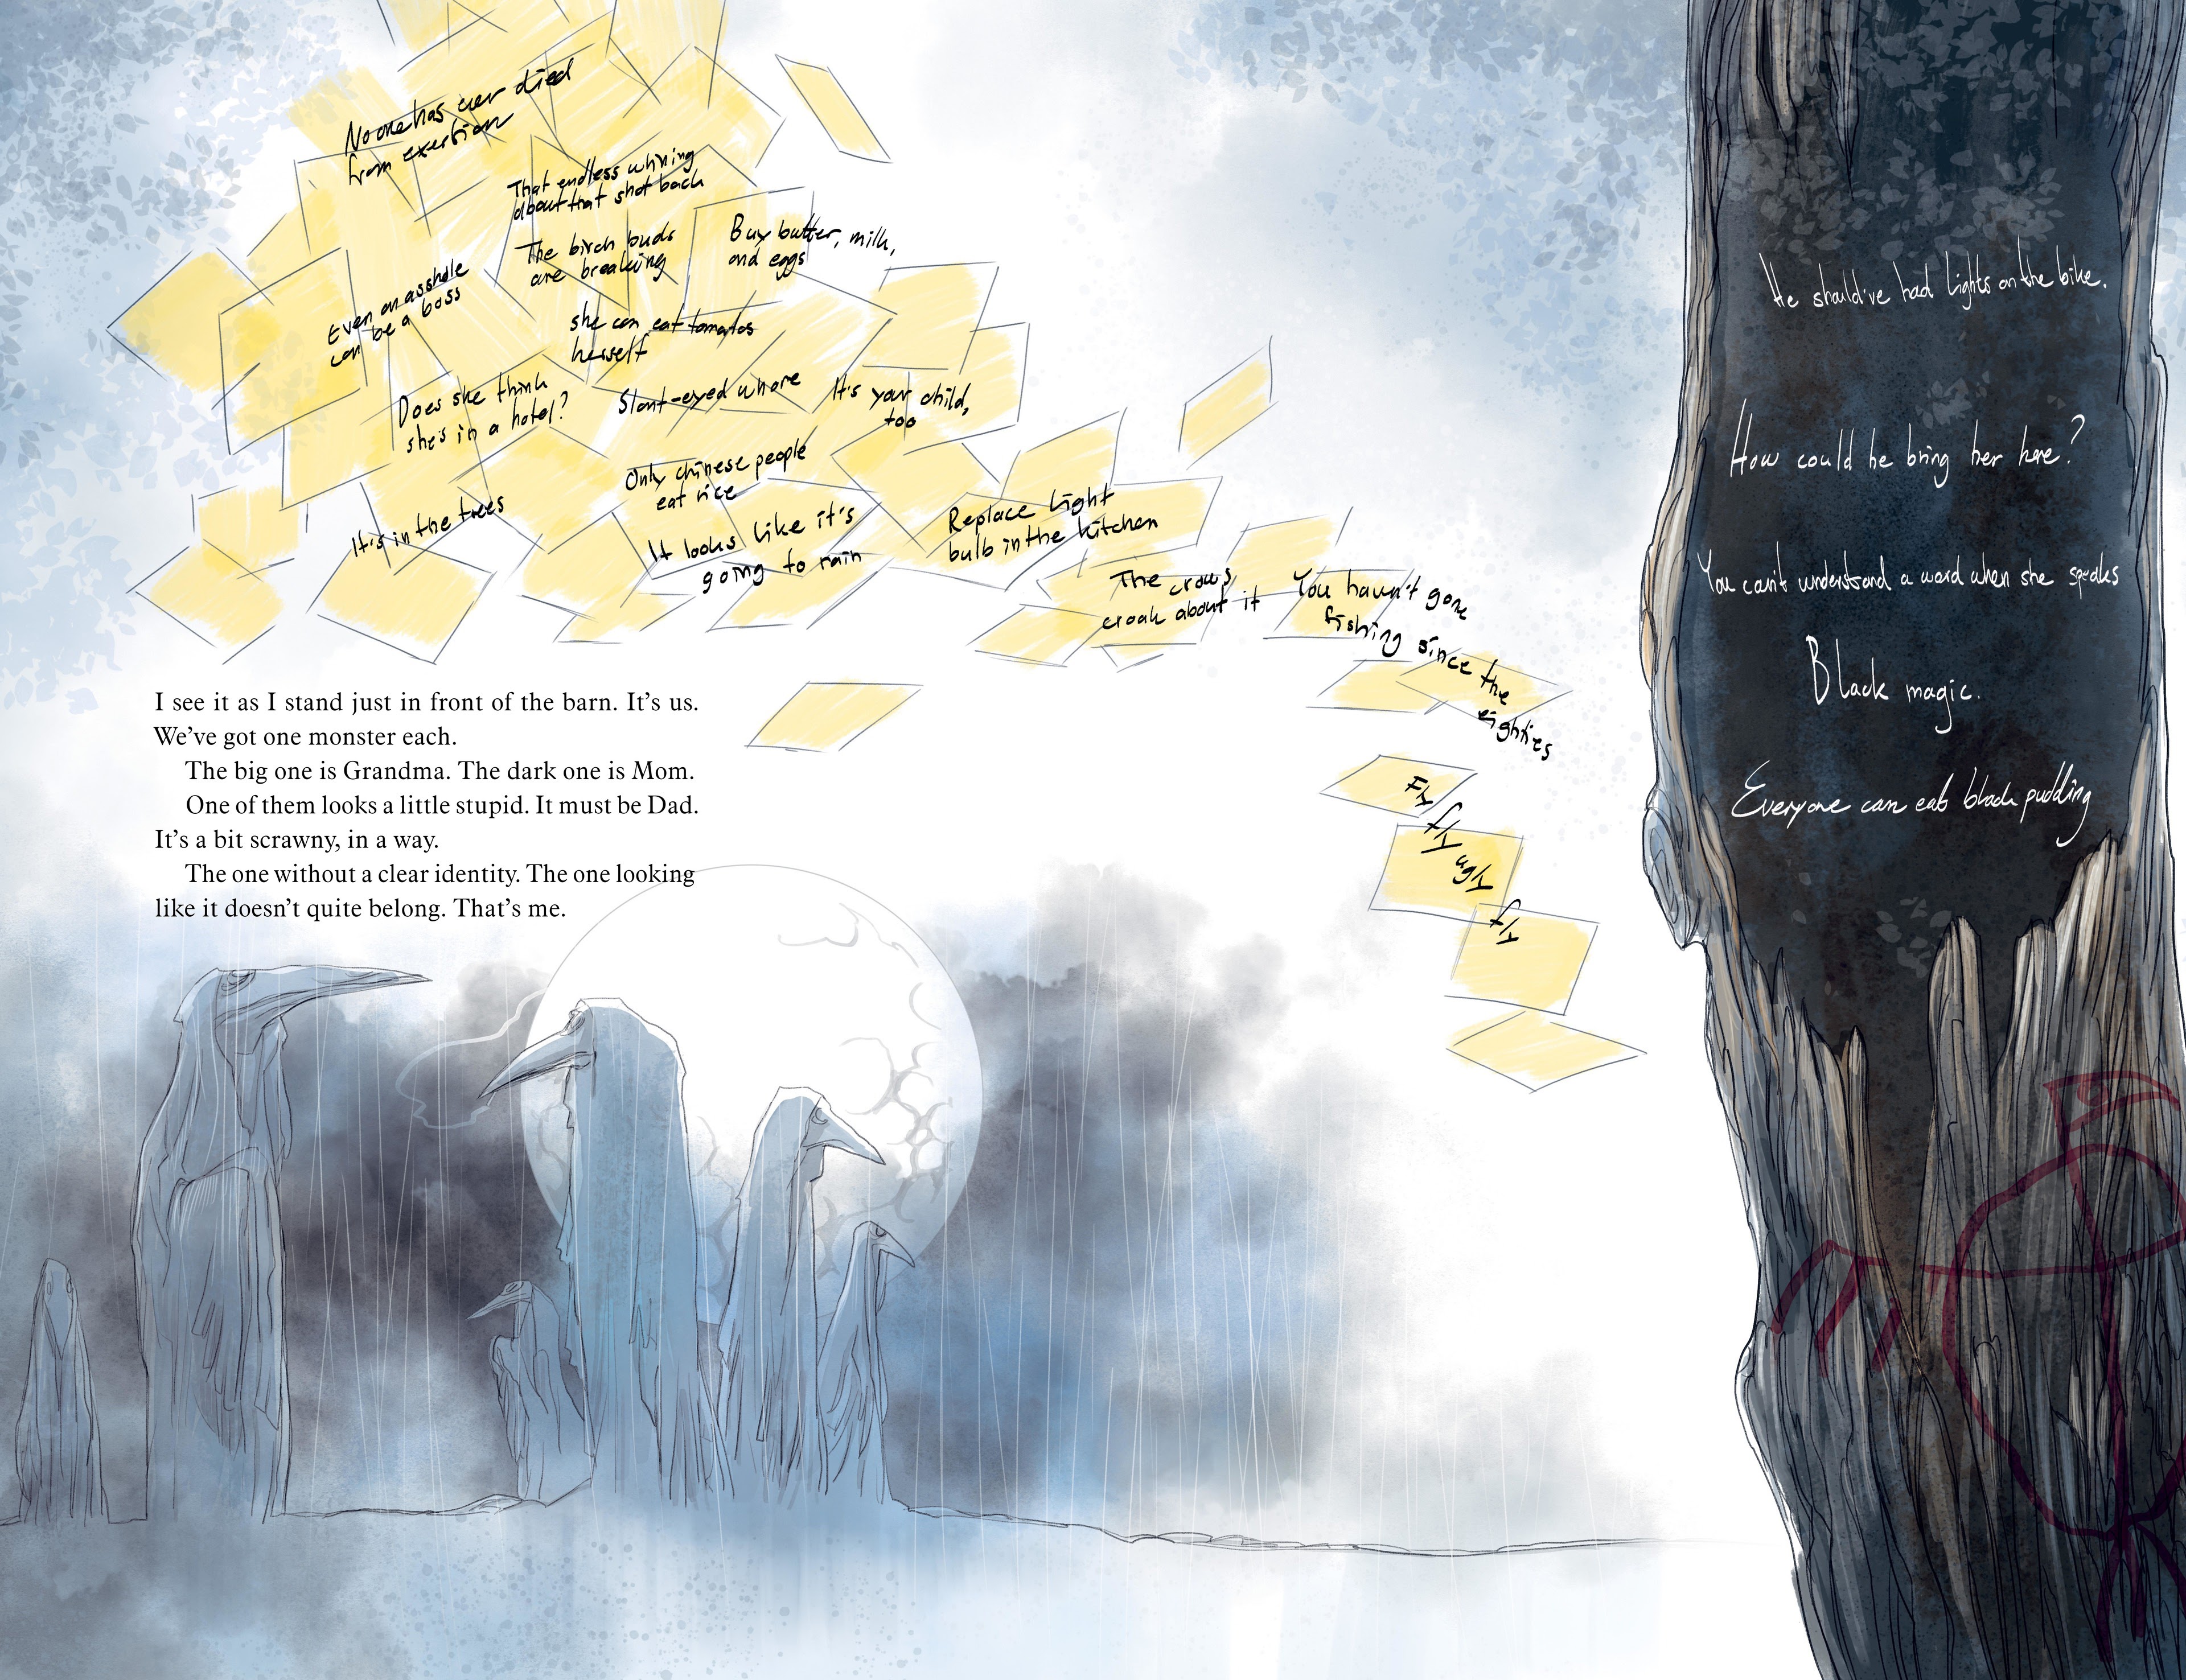 No one has ever died
from exertion
That endless whining
about that shot back
The birch buds
are breaking
Buy butter, milk,
and eggs
Even an asshole
can be a boss
she can eat tomatos
herself
Does she think
she's in a hotel?
Slant-eyed whore
It's your child,
too
Only chinese people
eat rice
It's in the trees
It looks like it's
going to rain
Replace light
bulb in the kitchen
The crows
croak about it
You havn't gone
fishing since the
eighties
Fly
fly
ugly
fly
I see it as I stand just in front of the barn. It's us.
We've got one monster each.
The big one is Grandma. The dark one is Mom.
One of them looks a little stupid. It must be Dad.
It's a bit scrawny, in a way.
The one without a clear identity. The one looking
like it doesn't quite belong. That's me.
He should've had lights on the bike.
How could he bring her here?
You can't understand a word when she speaks
Black magic.
Everyone can eat black pudding